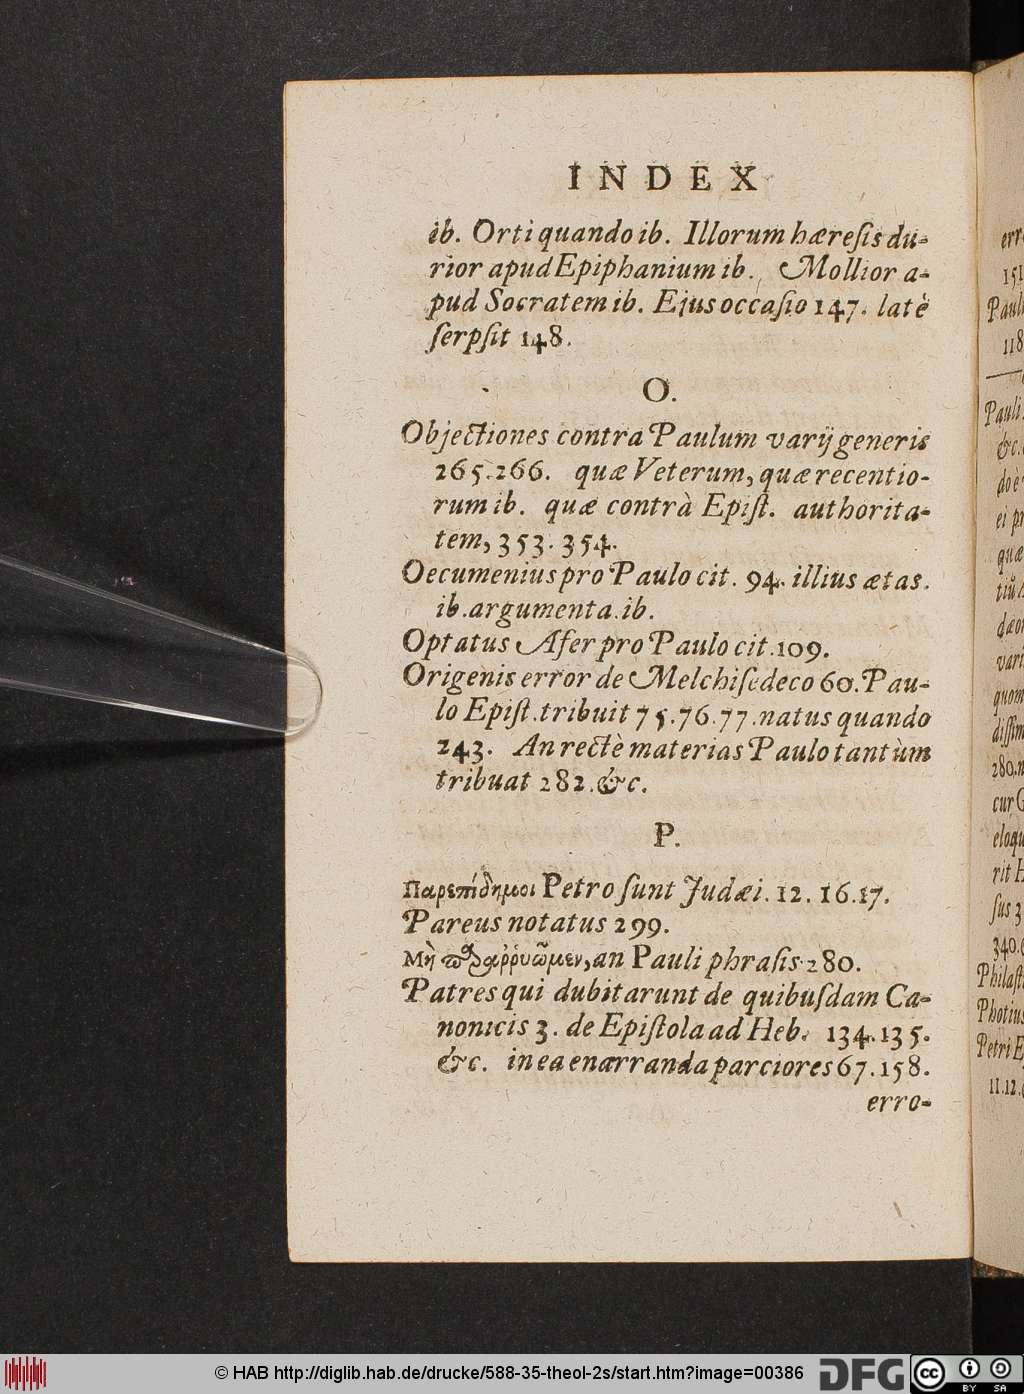 INDEX
ib. Orti quando ib. Illorum hæresis du-
rior apud Epiphanium ib. Mollior a-
pud Socratem ib. Ejus occasio 147. latè
serpsit 148.
O.
Objectiones contra Paulum varij generis
265.266. quæ Veterum, quæ recentio-
rum ib. quæ contrà Epist. authorita-
tem, 353.354.
Oecumenius pro Paulo cit. 94. illius ætas.
ib. argumenta. ib.
Optatus Afer pro Paulo cit. 109.
Origenis error de Melchisedeco 60. Pau-
lo Epist. tribuit 75.76.77. natus quando
243. An rectè materias Paulo tantùm
tribuat 282. &c.
P.
Παρεπίδημοι Petro sunt Judæi. 12. 16.17.
Pareus notatus 299.
Μὴ παραῤῥυῶμεν, an Pauli phrasis 280.
Patres qui dubitarunt de quibusdam Ca-
nonicis 3. de Epistola ad Heb. 134.135.
&c. in ea enarranda parciores 67.158.
erro-
© HAB http://diglib.hab.de/drucke/588-35-theol-2s/start.htm?image=00386
DFG
cc
BY SA